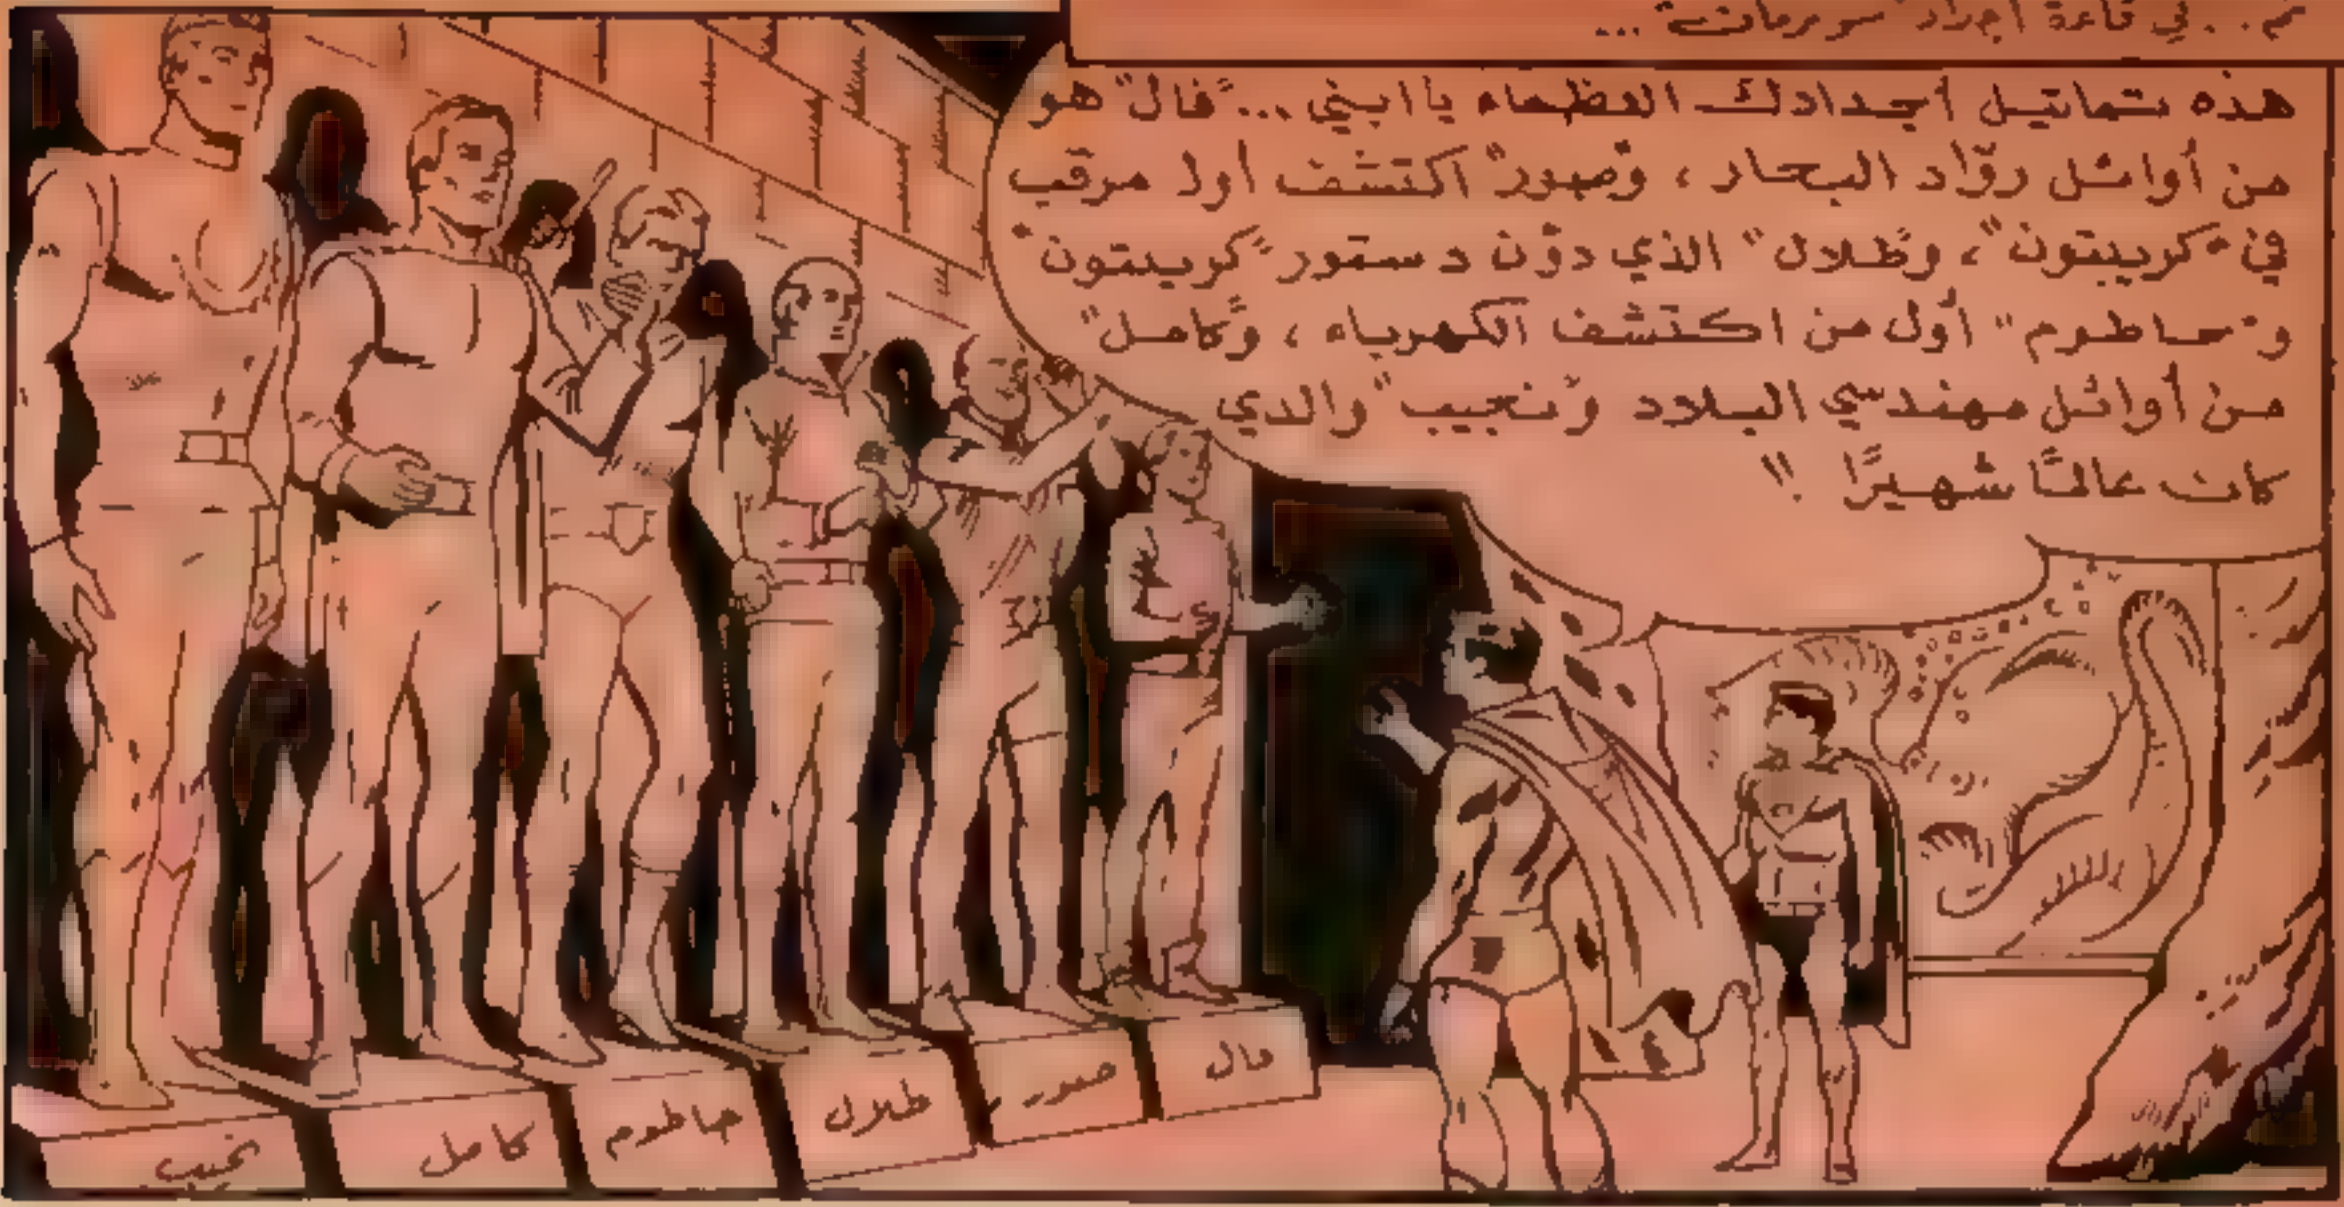 ثم... في قاعة أجداد "سوبرمان"...
هذه تماثيل أجدادك العظماء يا ابني... "فال" هو
من أوائل روّاد البحار، و"صور" اكتشف أول مرقب
في "كريبتون"، و"طلال" الذي دوّن دستور "كريبتون"
و"حاطوم" أول من اكتشف الكهرباء، و"كامل"
من أوائل مهندسي البلاد و"نجيب" والدي
كان عالمًا شهيرًا !!
فال
صور
طلال
حاطوم
كامل
نجيب